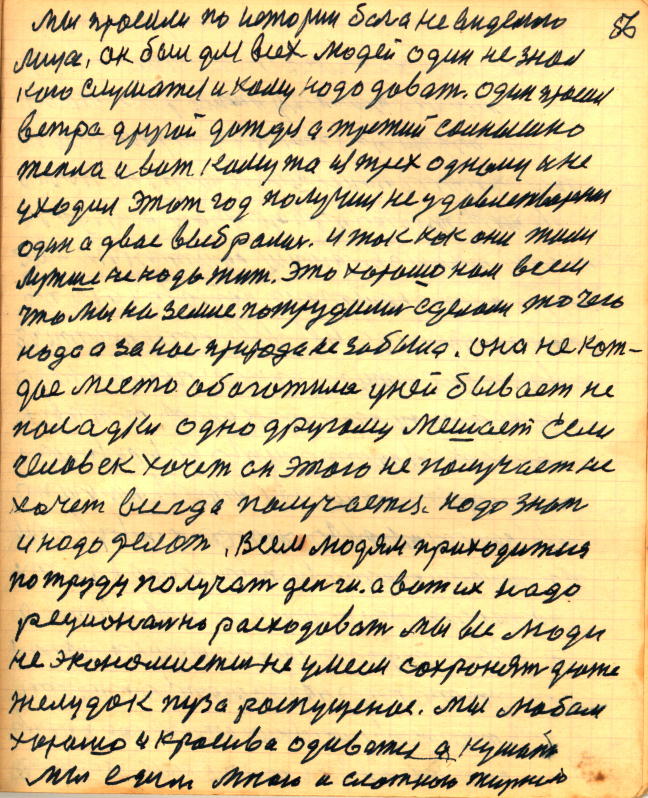 56
мы просили по истории бога не виденого
лица, он был для всех людей один не знал
кого слушать и кому надо доват. один просил
ветра другой дождя а третий солнышко
тепла и вот кому та из трех одному и не
уходил этот год получил не удовлетворени
один а двае выбрали. и так как они жили
лутше не надо жит. Это хорошо нам всем
что мы на земле потрудились сделали то чего
надо а за нас природа не забыла. она не кож-
дое место обоготила у ней бывает не
поладки одно другому мешает если
человек хочет он этого не получает не
хочет всегда получается. надо знат
и надо делот, всем людям приходится
по труду получат денги. а вот их надо
рецеонално расходоват мы все люди
не экономисты не умеем сохронят даже
желудок пуза роспущеное. мы любим
хорошо и красива одиватся а кушать
мы едим много и слоткого жирного